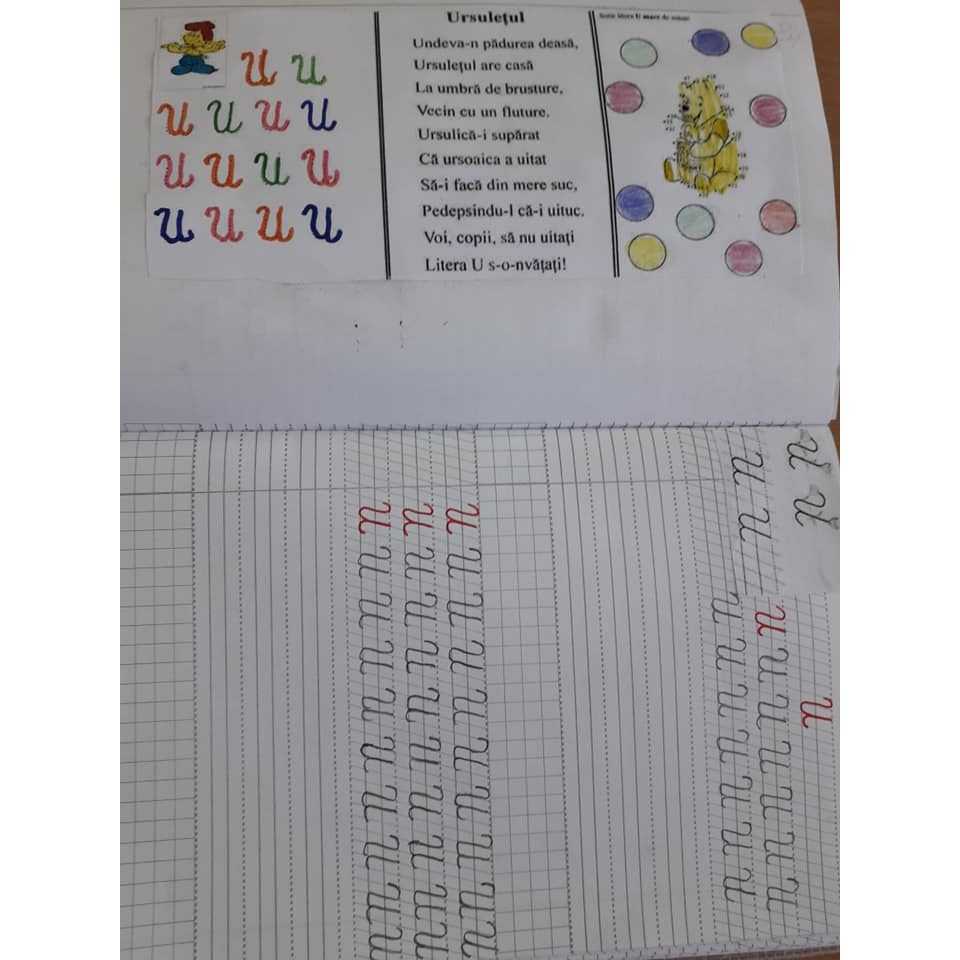 U U
U U U U
U U U U
U U U U
Ursulețul
Undeva-n pădurea deasă,
Ursulețul are casă
La umbră de brusture,
Vecin cu un fluture.
Ursulică-i supărat
Că ursoaica a uitat
Să-i facă din mere suc,
Pedepsindu-l că-i uituc.
Voi, copii, să nu uitați
Litera U s-o-nvățați!
Scrie litera U mare de mână!
U U U
U U U U U U U
U U U U U U U U U
U U U U U U U U U U
U U U U U U U U U U
U U U U U U U U U U